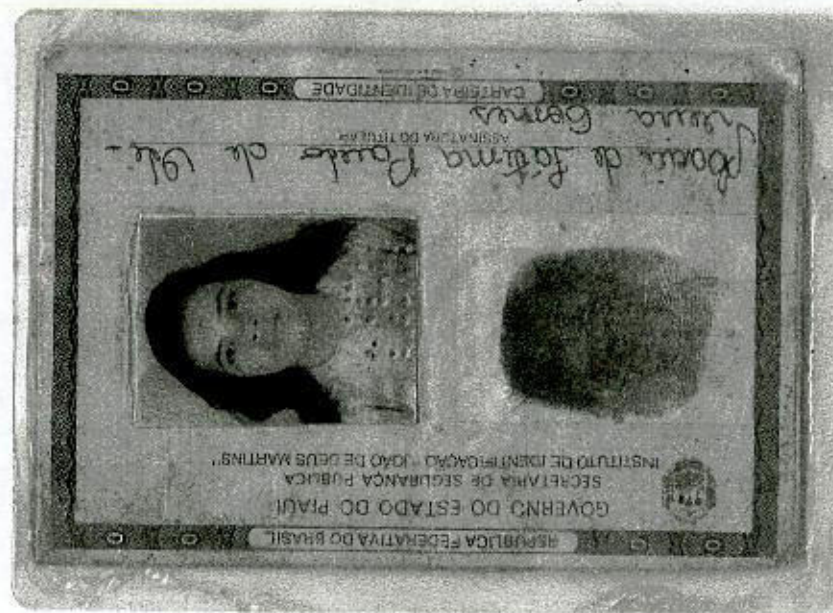 REPUBLICA FEDERATIVA DO BRASIL
GOVERNO DO ESTADO DO PIAUI
SECRETARIA DE SEGURANÇA PUBLICA
INSTITUTO DE IDENTIFICAÇÃO "JOÃO DE DEUS MARTINS"
Maria de Fátima de Oli-
ASSINATURA DO TITULAR
veira Gomes
CARTEIRA DE IDENTIDADE